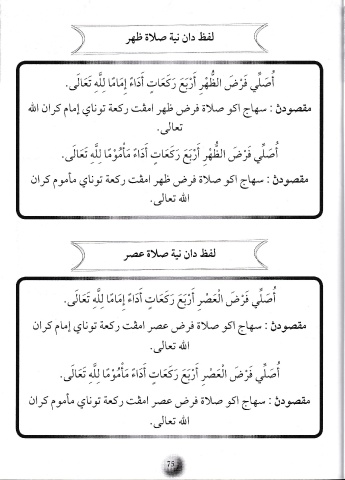 لفظ دان نية صلاة ظهر
أُصَلِّي فَرْضَ الظُّهْرِ أَرْبَعَ رَكَعَاتٍ أَدَاءً إِمَامًا لِلَّهِ تَعَالَى.
مقصودڽ : سهاج اكو صلاة فرض ظهر امڤت ركعة توناي إمام كران الله
تعالى.
أُصَلِّي فَرْضَ الظُّهْرِ أَرْبَعَ رَكَعَاتٍ أَدَاءً مَأْمُوْمًا لِلَّهِ تَعَالَى.
مقصودڽ : سهاج اكو صلاة فرض ظهر امڤت ركعة توناي مأموم كران
الله تعالى.
لفظ دان نية صلاة عصر
أُصَلِّي فَرْضَ الْعَصْرِ أَرْبَعَ رَكَعَاتٍ أَدَاءً إِمَامًا لِلَّهِ تَعَالَى.
مقصودڽ : سهاج اكو صلاة فرض عصر امڤت ركعة توناي إمام كران
الله تعالى.
أُصَلِّي فَرْضَ الْعَصْرِ أَرْبَعَ رَكَعَاتٍ أَدَاءً مَأْمُوْمًا لِلَّهِ تَعَالَى.
مقصودڽ : سهاج اكو صلاة فرض عصر امڤت ركعة توناي مأموم كران
الله تعالى.
75